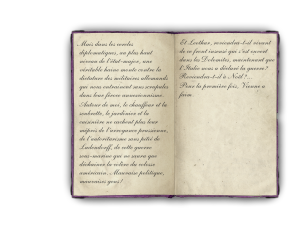 Mais dans les cercles
diplomatiques, au plus haut
niveau de l'état-major, une
véritable haine monte contre la
dictature des militaires allemands
qui nous entraînent sans scrupules
dans leur féroce annexionnisme.
Autour de moi, le chauffeur et la
soubrette, le jardinier et la
cuisinière ne cachent plus leur
mépris de l'arrogance prussienne,
de l'autoritarisme sans pitié de
Ludendorff, de cette guerre
sous-marine qui ne saura que
déchaîner la colère du colosse
américain. Mauvaise politique,
mauvaises gens!
Et Lothar, reviendra-t-il vivant
de ce front insensé qui s'est ouvert
dans les Dolomites, maintenant que
l'Italie nous a déclaré la guerre?
Reviendra-t-il à Noël?...
Pour la première fois, Vienne a
faim.